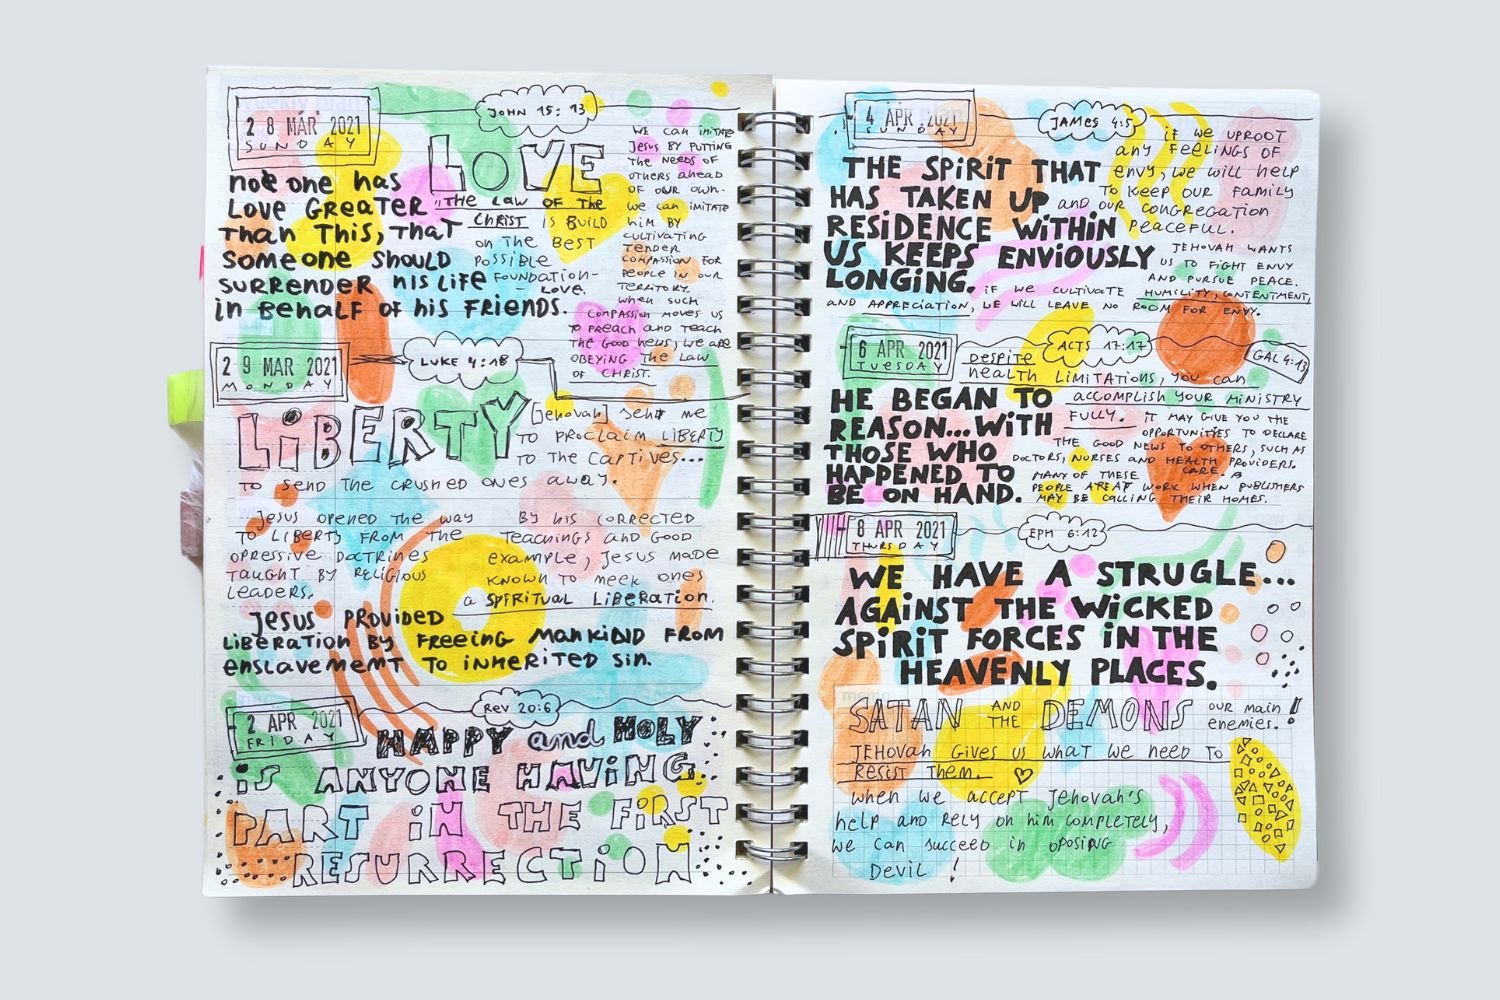 28 MAR 2021
SUNDAY
JOHN 15:13
LOVE
not one has
Love GreaTer
Than This, That
someone should
surrender his Life
in Behalf of his Friends.
"The Law of The
Christ is Build
on The Best
possible
Foundation-
Love.
We can imitate
Jesus By PUTTING
The needs of
others ahead
of our own.
We can imitate
him By
cultivating
Tender
compassion for
people in our
Territory.
when such
compassion moves us
To preach and Teach
The Good news, we are
OBEYING The Law
of Christ.
29 MAR 2021
MONDAY
LUKE 4:18
LiBERTY
[Jehovah] sent me
To proclaim LiBERTY
To The capTives...
To send The crushed ones away.
Jesus opened The way
To LiBerty from The
opressive Doctrines
TaughT By Religious
Leaders.
By his corrected
Teachings and Good
example, Jesus made
known To meek ones
a SPiRiTUAL LiBeraTion.
Jesus PROVIDED
LiBeraTion By Freeing mankind From
enslavement To inHeriTed sin.
2 APR 2021
FRIDAY
Rev 20:6
HAPPY and HOLY
iS ANYONE HAViNG
PART iN THE FiRST
RESURRECTiON
4 APR 2021
SUNDAY
JAMES 4:5
THE SPiRiT THAT
HAS TAKEN UP
RESiDENCE WiTHiN
US KEEPS ENViOUSLY
LONGiNG.
if we UPROOT
any Feelings of
envy, we will help
To keep our Family
and our congregation
peaceful.
Jehovah wants
us To Fight envy
and pursue peace.
if we cultivate humility, contentment,
and appreciation, we will leave no room for envy.
6 APR 2021
TUESDAY
ACTS 17:17
GAL 4:13
HE BEGAN TO
REASON...WiTH
THOSE WHO
HAPPENED TO
BE ON HAND.
DESPiTE
health LimiTaTions, you can
accomplish your ministry
FULLY. iT may Give you The
opportunities To Declare
The Good news To others, such as
Doctors, nurses and health care providers.
many of These
people are at work when publishers
may be calling Their homes.
8 APR 2021
THURSDAY
EPH 6:12
WE HAVE A STRUGLE...
AGAiNST THE WiCKED
SPiRiT FORCES iN THE
HEAVENLY PLACES.
memo
SATAN AND THE DEMONS our main enemies!
Jehovah Gives us what we need To
Resist Them.
when we accept Jehovah's
help and Rely on him completely,
we can succeed in oposing
Devil!